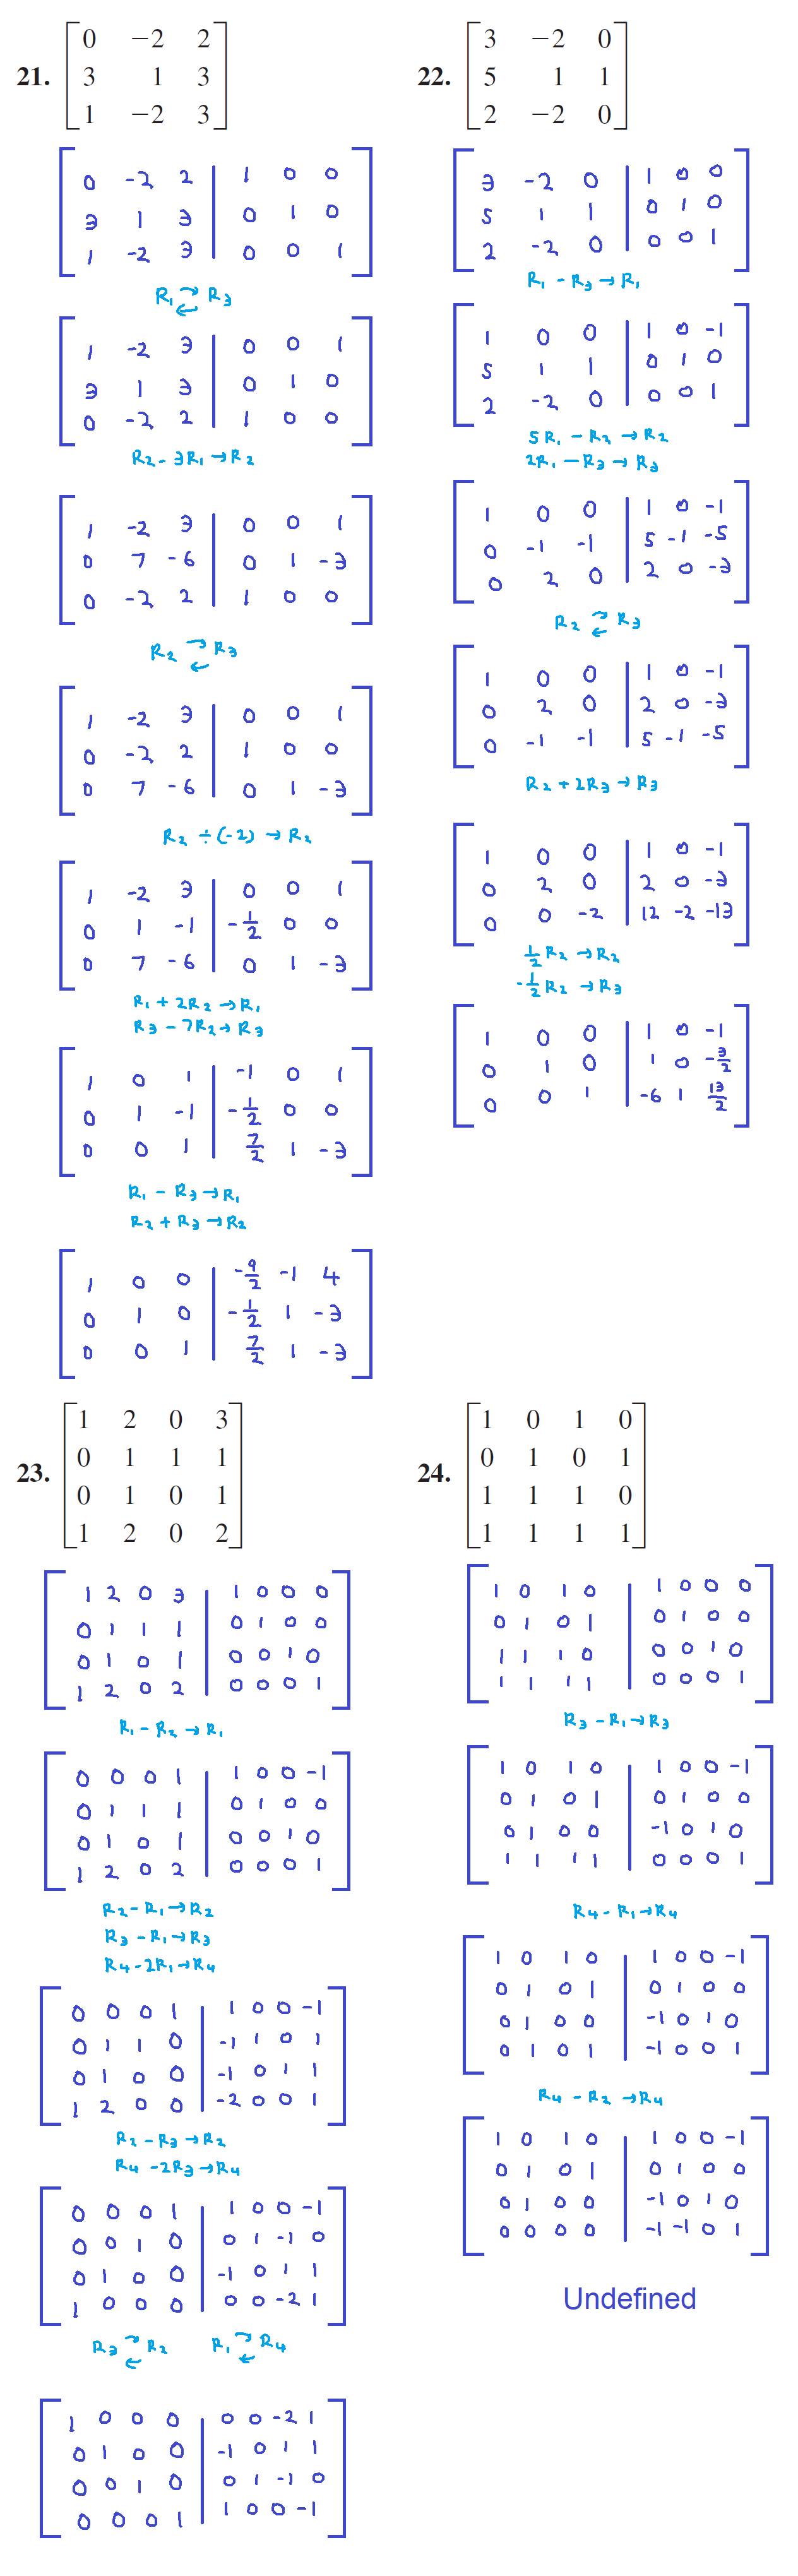 21.
0 −2 2
3 1 3
1 −2 3
0 -2 2 | 1 0 0
3 1 3 | 0 1 0
1 -2 3 | 0 0 1
R₁ ⇄ R₃
1 -2 3 | 0 0 1
3 1 3 | 0 1 0
0 -2 2 | 1 0 0
R₂ - 3R₁ → R₂
1 -2 3 | 0 0 1
0 7 -6 | 0 1 -3
0 -2 2 | 1 0 0
R₂ ⇄ R₃
1 -2 3 | 0 0 1
0 -2 2 | 1 0 0
0 7 -6 | 0 1 -3
R₂ ÷ (-2) → R₂
1 -2 3 | 0 0 1
0 1 -1 | -1/2 0 0
0 7 -6 | 0 1 -3
R₁ + 2R₂ → R₁
R₃ - 7R₂ → R₃
1 0 1 | -1 0 1
0 1 -1 | -1/2 0 0
0 0 1 | 7/2 1 -3
R₁ - R₃ → R₁
R₂ + R₃ → R₂
1 0 0 | -9/2 -1 4
0 1 0 | -1/2 1 -3
0 0 1 | 7/2 1 -3
22.
3 −2 0
5 1 1
2 −2 0
3 -2 0 | 1 0 0
5 1 1 | 0 1 0
2 -2 0 | 0 0 1
R₁ - R₃ → R₁
1 0 0 | 1 0 -1
5 1 1 | 0 1 0
2 -2 0 | 0 0 1
5R₁ - R₂ → R₂
2R₁ - R₃ → R₃
1 0 0 | 1 0 -1
0 -1 -1 | 5 -1 -5
0 2 0 | 2 0 -3
R₂ ⇄ R₃
1 0 0 | 1 0 -1
0 2 0 | 2 0 -3
0 -1 -1 | 5 -1 -5
R₂ + 2R₃ → R₃
1 0 0 | 1 0 -1
0 2 0 | 2 0 -3
0 0 -2 | 12 -2 -13
1/2 R₂ → R₂
-1/2 R₂ → R₃
1 0 0 | 1 0 -1
0 1 0 | 1 0 -3/2
0 0 1 | -6 1 13/2
23.
1 2 0 3
0 1 1 1
0 1 0 1
1 2 0 2
1 2 0 3 | 1 0 0 0
0 1 1 1 | 0 1 0 0
0 1 0 1 | 0 0 1 0
1 2 0 2 | 0 0 0 1
R₁ - R₂ → R₁
0 0 0 1 | 1 0 0 -1
0 1 1 1 | 0 1 0 0
0 1 0 1 | 0 0 1 0
1 2 0 2 | 0 0 0 1
R₂ - R₁ → R₂
R₃ - R₁ → R₃
R₄ - 2R₁ → R₄
0 0 0 1 | 1 0 0 -1
0 1 1 0 | -1 1 0 1
0 1 0 0 | -1 0 1 1
1 2 0 0 | -2 0 0 1
R₂ - R₃ → R₂
R₄ - 2R₃ → R₄
0 0 0 1 | 1 0 0 -1
0 0 1 0 | 0 1 -1 0
0 1 0 0 | -1 0 1 1
1 0 0 0 | 0 0 -2 1
R₃ ⇄ R₂ R₁ ⇄ R₄
1 0 0 0 | 0 0 -2 1
0 1 0 0 | -1 0 1 1
0 0 1 0 | 0 1 -1 0
0 0 0 1 | 1 0 0 -1
24.
1 0 1 0
0 1 0 1
1 1 1 0
1 1 1 1
1 0 1 0 | 1 0 0 0
0 1 0 1 | 0 1 0 0
1 1 1 0 | 0 0 1 0
1 1 1 1 | 0 0 0 1
R₃ - R₁ → R₃
1 0 1 0 | 1 0 0 -1
0 1 0 1 | 0 1 0 0
0 1 0 0 | -1 0 1 0
1 1 1 1 | 0 0 0 1
R₄ - R₁ → R₄
1 0 1 0 | 1 0 0 -1
0 1 0 1 | 0 1 0 0
0 1 0 0 | -1 0 1 0
0 1 0 1 | -1 0 0 1
R₄ - R₂ → R₄
1 0 1 0 | 1 0 0 -1
0 1 0 1 | 0 1 0 0
0 1 0 0 | -1 0 1 0
0 0 0 0 | -1 -1 0 1
Undefined